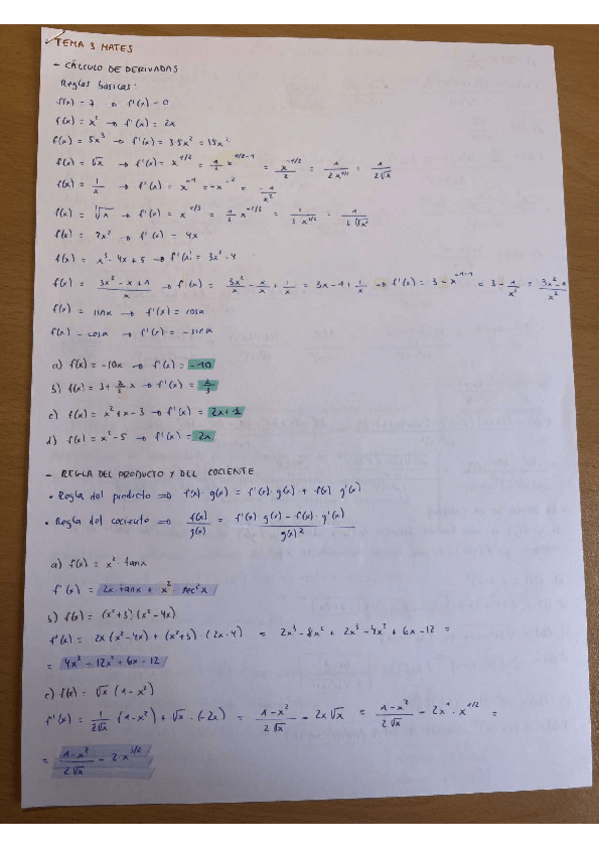 TEMA 3 MATES
- CÁLCULO DE DERIVADAS
Reglas básicas:
f(x) = 7 → f'(x) = 0
f(x) = x² → f'(x) = 2x
f(x) = 5x³ → f'(x) = 3·5x² = 15x²
f(x) = √x → f'(x) = x^1/2 = 1/2 x^1/2-1 = x^-1/2 / 2 = 1/2x^1/2 = 1/2√x
f(x) = 1/x → f'(x) = x^-1 = -x^-2 = -1/x²
f(x) = ∛x → f'(x) = x^1/3 = 1/3 x^-2/3
f(x) = 2x² → f'(x) = 4x
f(x) = x³ - 4x + 5 → f'(x) = 3x² - 4
f(x) = 3x² - x + 1 / x → f'(x) = 3x²/x - x/x + 1/x = 3x - 1 + 1/x → f'(x) = 3 - x^-1-1 = 3 - 1/x² = 3x² - 1 / x²
f(x) = sinx → f'(x) = cosx
f(x) = cosx → f'(x) = -sinx
a) f(x) = -10x → f'(x) = -10
b) f(x) = 3 + 2/3 x → f'(x) = 2/3
c) f(x) = x² + x - 3 → f'(x) = 2x + 1
d) f(x) = x² - 5 → f'(x) = 2x
- REGLA DEL PRODUCTO Y DEL COCIENTE
• Regla del producto ⇒ f(x) · g(x) = f'(x) · g(x) + f(x) · g'(x)
• Regla del cociente ⇒ f(x)/g(x) = f'(x) · g(x) - f(x) · g'(x) / g(x)²
a) f(x) = x² · tanx
f'(x) = 2x · tanx + x² · sec²x
b) f(x) = (x²+3) · (x² - 4x)
f'(x) = 2x (x² - 4x) + (x²+3) · (2x - 4) = 2x³ - 8x² + 2x³ - 4x² + 6x - 12 =
= 4x³ - 12x² + 6x - 12
c) f(x) = √x (1 - x²)
f'(x) = 1/2√x (1 - x²) + √x · (-2x) = 1 - x² / 2√x - 2x√x = 1 - x² / 2√x - 2x¹ · x^1/2 =
= 1 - x² / 2√x - 2 · x^3/2